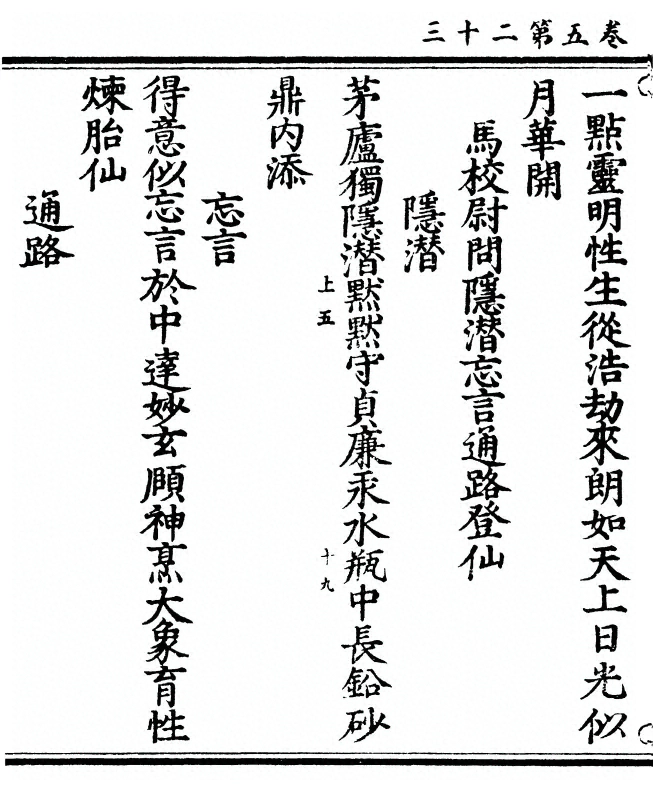 卷五第二十三
一點靈明性生從浩劫來朗如天上日光似
月華開
馬校尉問隱潛忘言通路登仙
隱潛
茅廬獨隱潛黙黙守貞廉汞水瓶中長鉛砂
上五
十九
鼎内添
忘言
得意似忘言於中達妙玄頤神烹大象育性
煉胎仙
通路